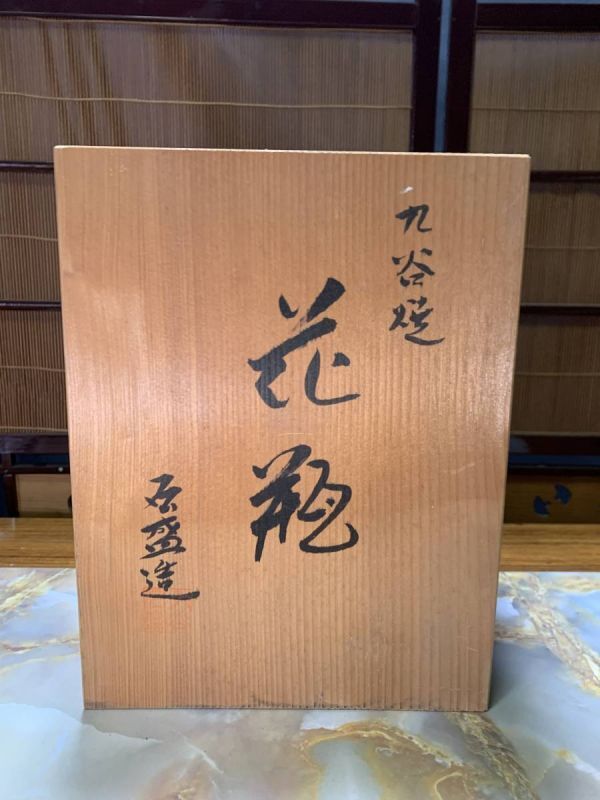 九谷焼
花瓶
石盛造